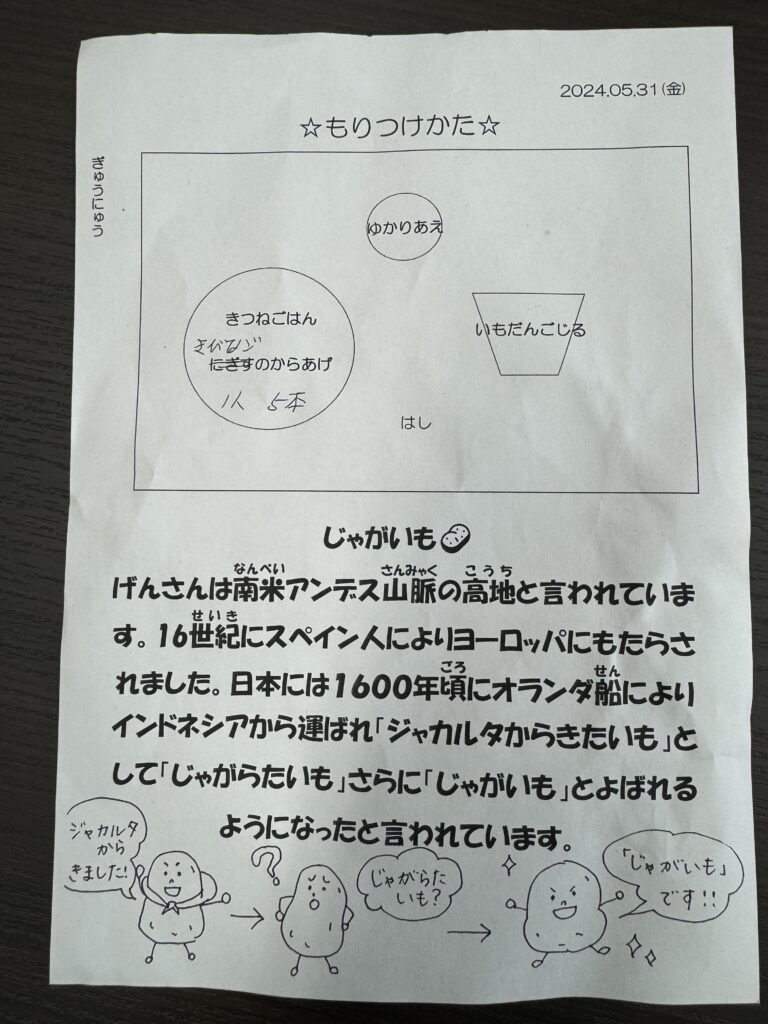 2024.05.31(金)
☆もりつけかた☆
ぎゅうにゅう
ゆかりあえ
きつねごはん
きびなご
にぎすのからあげ
1人 5本
いもだんごじる
はし
じゃがいも
げんさんは南米アンデス山脈の高地と言われていま
す。16世紀にスペイン人によりヨーロッパにもたらさ
れました。日本には1600年頃にオランダ船により
インドネシアから運ばれ「ジャカルタからきたいも」と
して「じゃがらたいも」さらに「じゃがいも」とよばれる
ようになったと言われています。
ジャカルタ
から
きました!
?
じゃがらた
いも?
「じゃがいも」
です!!